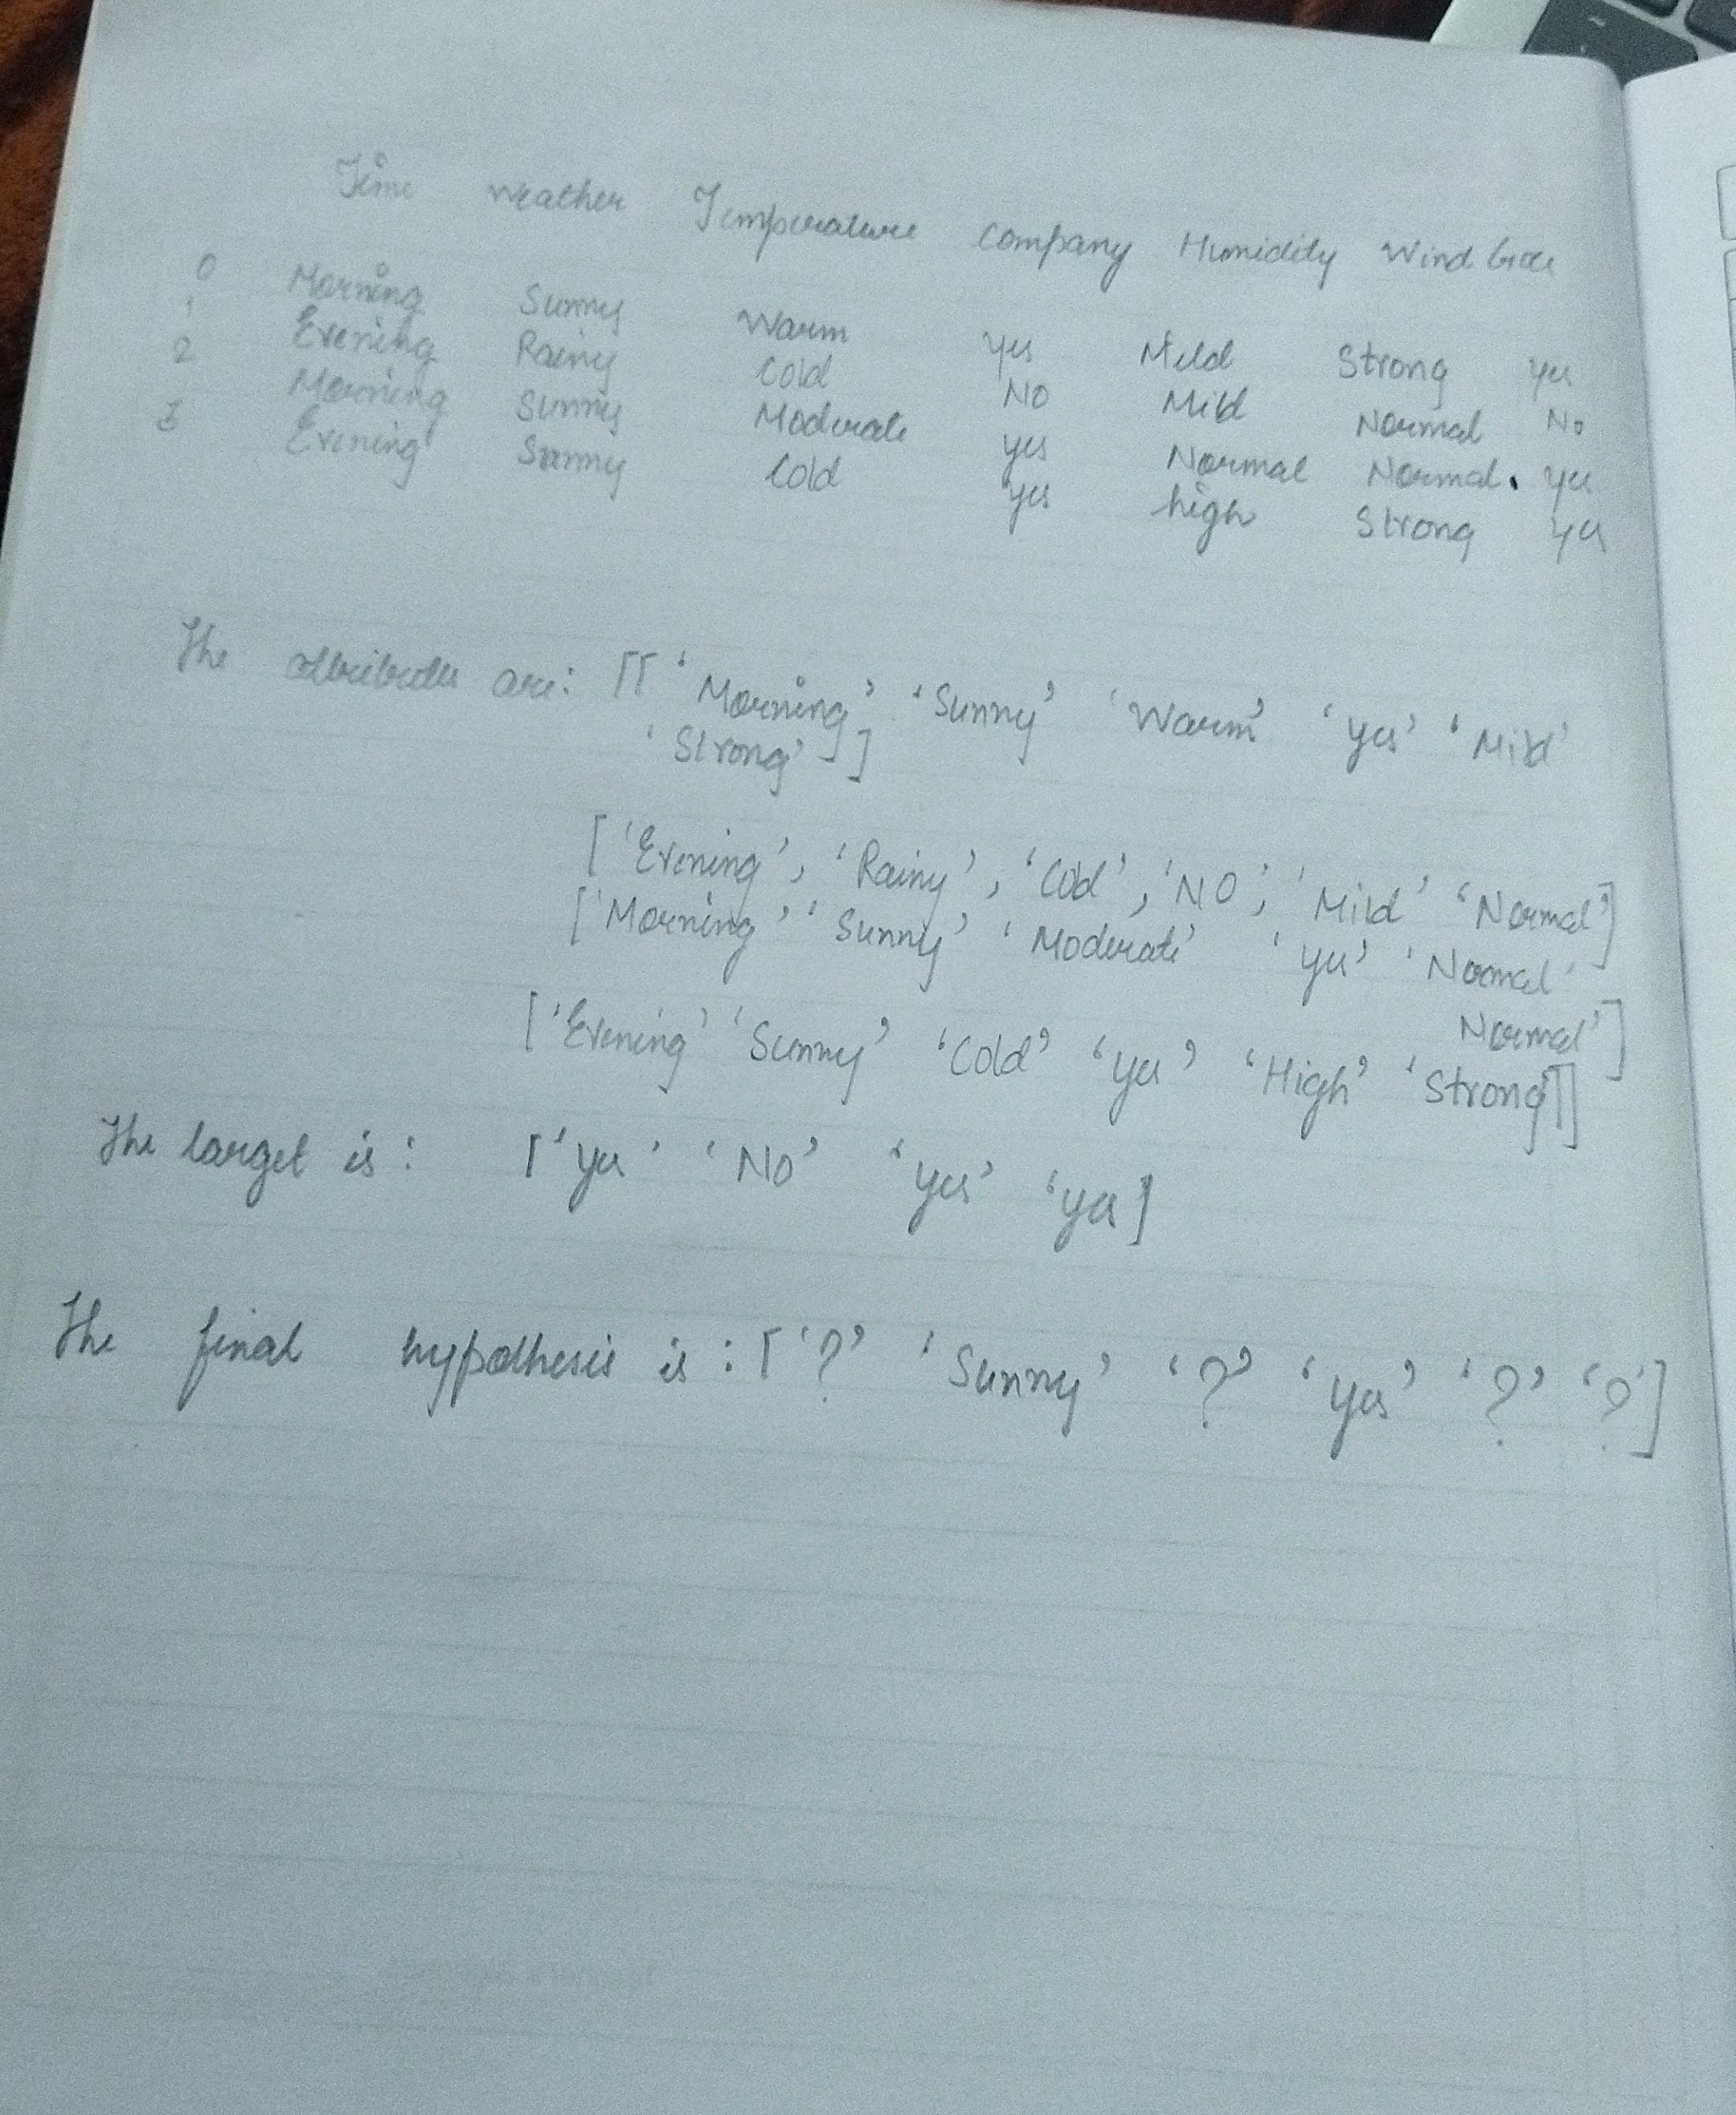 Time Weather Temperature Company Humidity Wind
0 Morning Sunny Warm Yes Mild Strong Yes
1 Evening Rainy Cold NO Mild Normal No
2 Morning Sunny Moderate Yes Normal Normal. Yes
3 Evening Sunny Cold Yes high Strong Yes
The attributes are: [[ 'Morning' 'Sunny' 'Warm' 'Yes' 'Mild'
'Strong' ]]
['Evening', 'Rainy', 'Cold', 'NO', 'Mild' 'Normal']
['Morning' 'Sunny' 'Moderate' 'Yes' 'Normal'
Normal']
['Evening' 'Sunny' 'Cold' 'Yes' 'High' 'Strong]]
The target is : ['Yes' 'No' 'Yes' 'Yes]
The final hypothesis is : ['?' 'Sunny' '?' 'Yes' '?' '?']